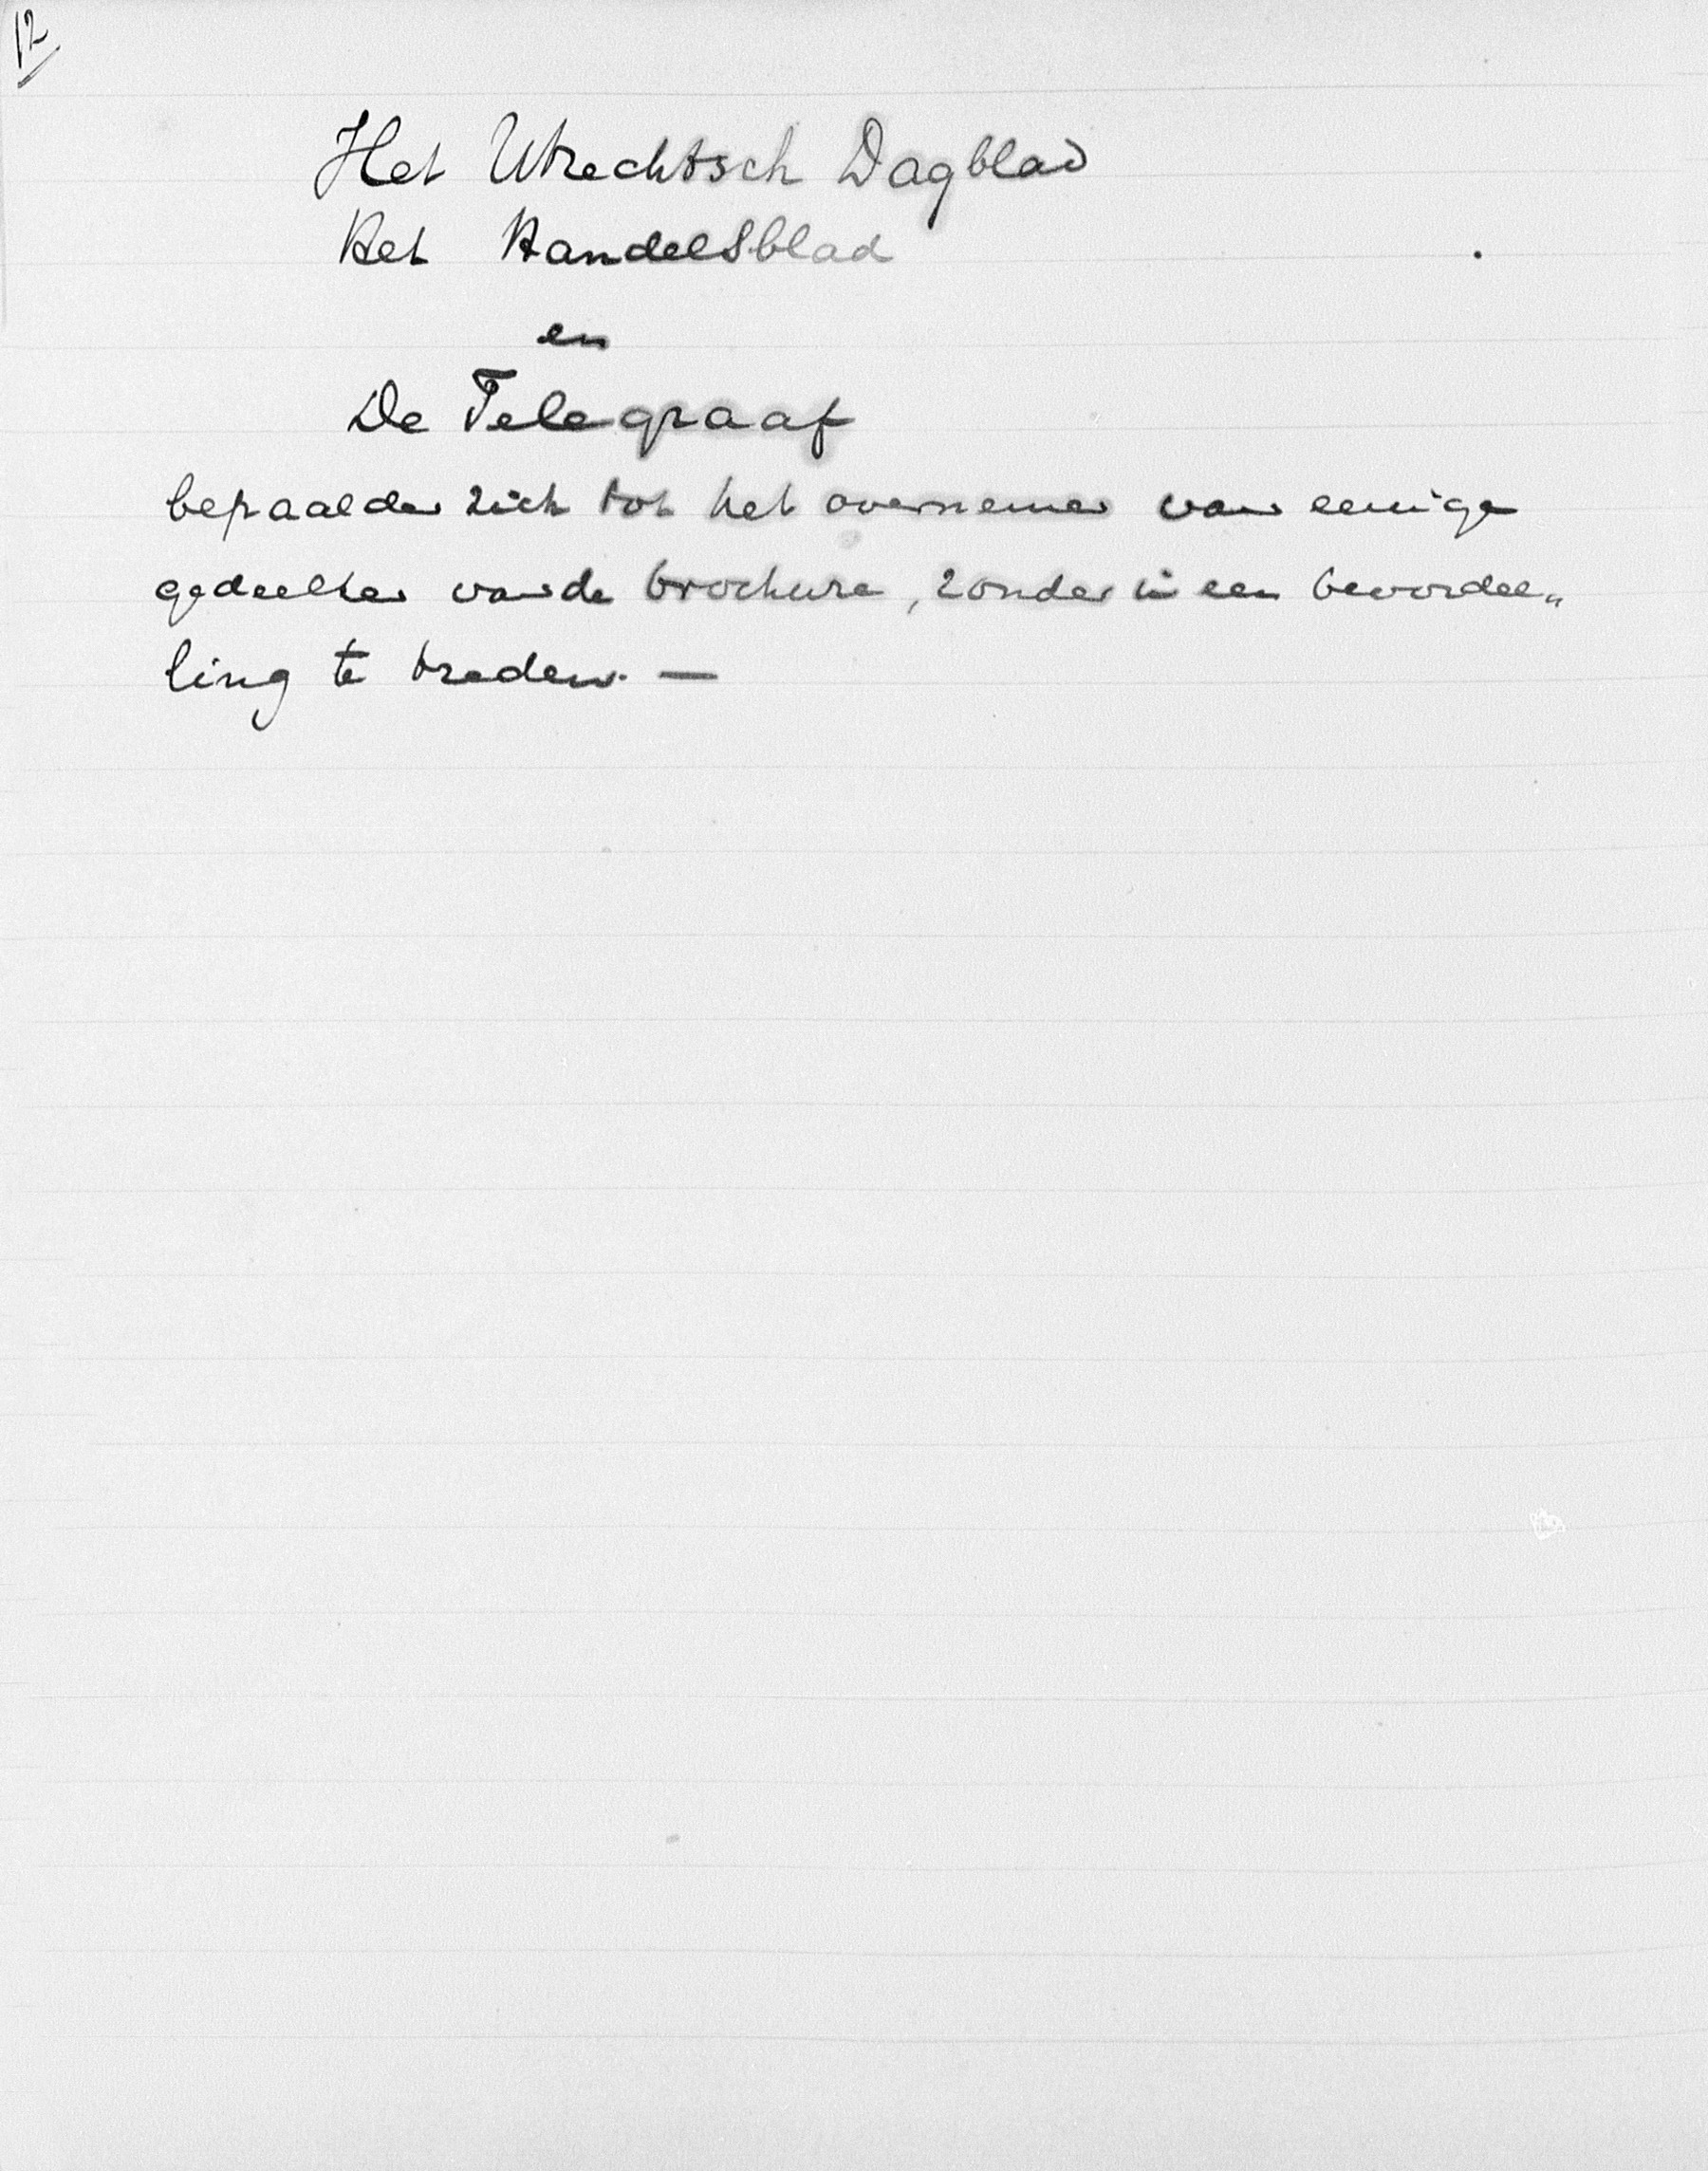 12
Het Utrechtsch Dagblad
Het Handelsblad
en
De Telegraaf
bepaalden zich tot het overnemen van eenige
gedeelten van de brochure, zonder in een beoordee„
ling te treden. —